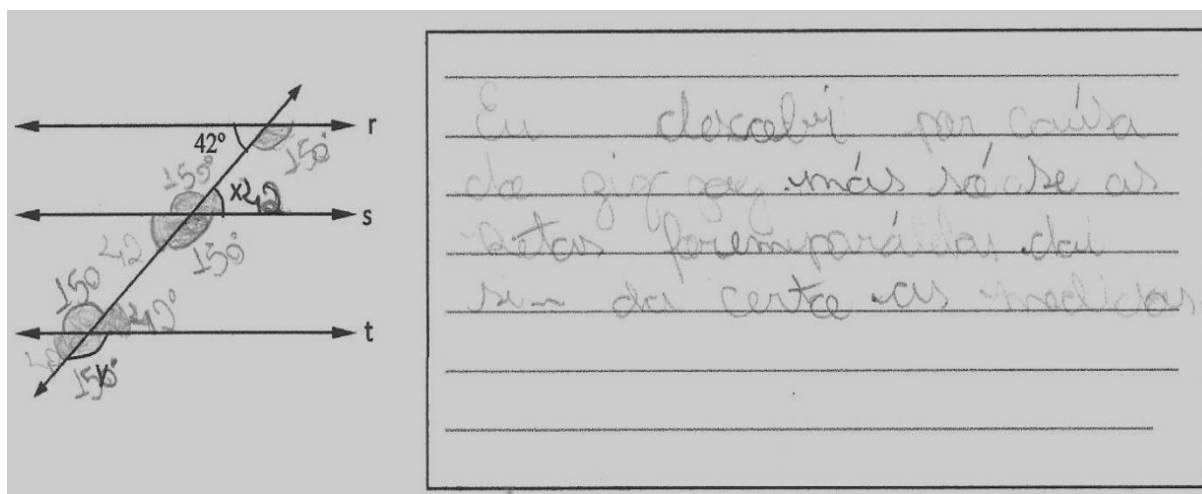 r
42º
150°
150°
x 42
s
42
150°
150
42°
t
42
150°
y
Eu descobri por caúsa
do zig zag más só se as
retas forem paralelas dai
sim da certo as medidas